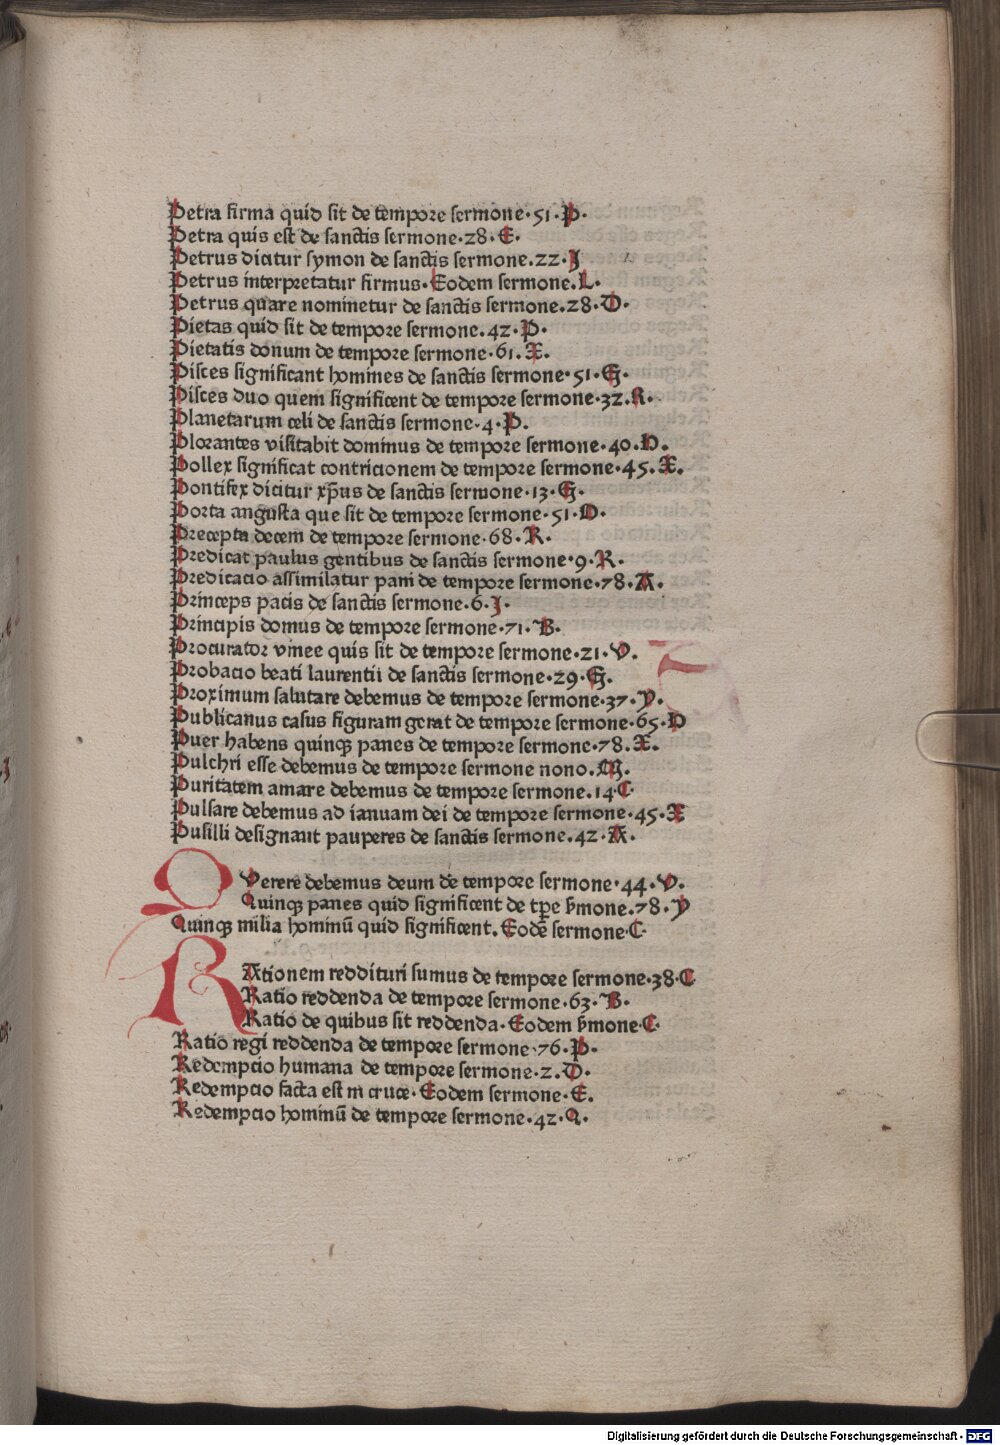 Petra firma quid sit de tempore sermone·51·P·
Petra quis est de sanctis sermone·28·E·
Petrus dicitur symon de sanctis sermone.22·J
Petrus interpretatur firmus·Eodem sermone.L·
Petrus quare nominetur de sanctis sermone.28·D·
Pietas quid sit de tempore sermone.42·P·
Pietatis donum de tempore sermone·61.X.
Pisces significant homines de sanctis sermone·51·G·
Pisces duo quem significent de tempore sermone·32.R·
Planetarum celi de sanctis sermone·4·P.
Plorantes visitabit dominus de tempore sermone·40.H.
Pollex significat contricionem de tempore sermone·45.X.
Pontifex dicitur xp̄us de sanctis sermone·13·G·
Porta angusta que sit de tempore sermone·51·O·
Precepta decem de tempore sermone·68·R·
Predicat paulus gentibus de sanctis sermone·9·R·
Predicacio assimilatur pani de tempore sermone·78·A.
Princeps pacis de sanctis sermone·6·J·
Principis domus de tempore sermone·71·B·
Procurator vinee quis sit de tempore sermone·21·V.
Probacio beati laurentii de sanctis sermone·29·G.
Proximum salutare debemus de tempore sermone·37·Y.
Publicanus casus figuram gerat de tempore sermone·65·H
Puer habens quinqꝫ panes de tempore sermone·78.X.
Pulchri esse debemus de tempore sermone nono.M.
Puritatem amare debemus de tempore sermone.14·C·
Pulsare debemus ad ianuam dei de tempore sermone·45·X
Pusilli designant pauperes de sanctis sermone.42·A.
QVerere debemus deum de tempore sermone·44·V.
Quinqꝫ panes quid significent de tp̄e s̄mone.78·Y
Quinqꝫ milia hominū quid significent.Eodē sermone·C·
RAtionem reddituri sumus de tempore sermone·38·C
Ratio reddenda de tempore sermone·63·B·
Ratio de quibus sit reddenda·Eodem s̄mone·C·
Ratio regi reddenda de tempore sermone·76·P·
Redempcio humana de tempore sermone·2.D·
Redempcio facta est in cruce·Eodem sermone·E.
Redempcio hominū de tempore sermone·42·Q·
Digitalisierung gefördert durch die Deutsche Forschungsgemeinschaft · DFG